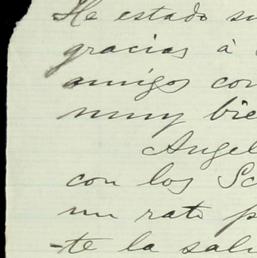 He estado su
gracias à
amigos con
muy bie
Angel
con los Sc
un rato p
-te la salu